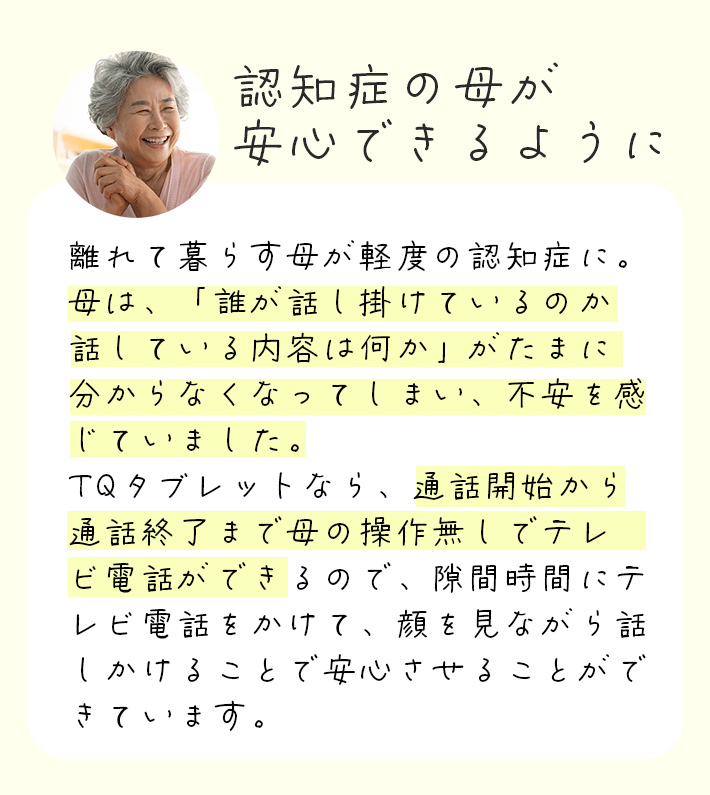 認知症の母が
安心できるように
離れて暮らす母が軽度の認知症に。
母は、「誰が話し掛けているのか
話している内容は何か」がたまに
分からなくなってしまい、不安を感
じていました。
TQタブレットなら、通話開始から
通話終了まで母の操作無しでテレ
ビ電話ができるので、隙間時間にテ
レビ電話をかけて、顔を見ながら話
しかけることで安心させることがで
きています。